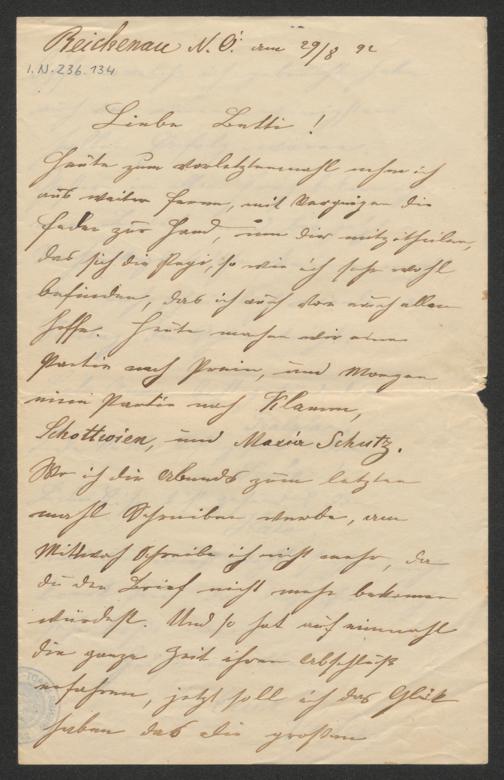 Reichenau N. Ö. am 29/8 92
I.N. 236.134
Liebe Betti!
Heute zum vorletztenmahl nehme ich
aus weiter Ferne, mit Vergnügen die
Feder zur Hand, um dir mitzitheilen,
das sich die Pepi, so wie ich sehr wohl
befinden, das ich auch von euch allen
hoffe. Heute machen wir eine
Partie nach Prein, und Morgen
eine Partie nach Klamm,
Schottwien, und Maria Schutz.
Wo ich dir Abends zum letzten
mahl Schreiben werde, am
Mittwoch Schreibe ich nicht mehr, da
du den Brief nicht mehr bekomen
würdest. Und so hat auch einmahl
die ganze Zeit ihren Abschluß
erfahren, jetzt soll ich das Glük
haben das die großen